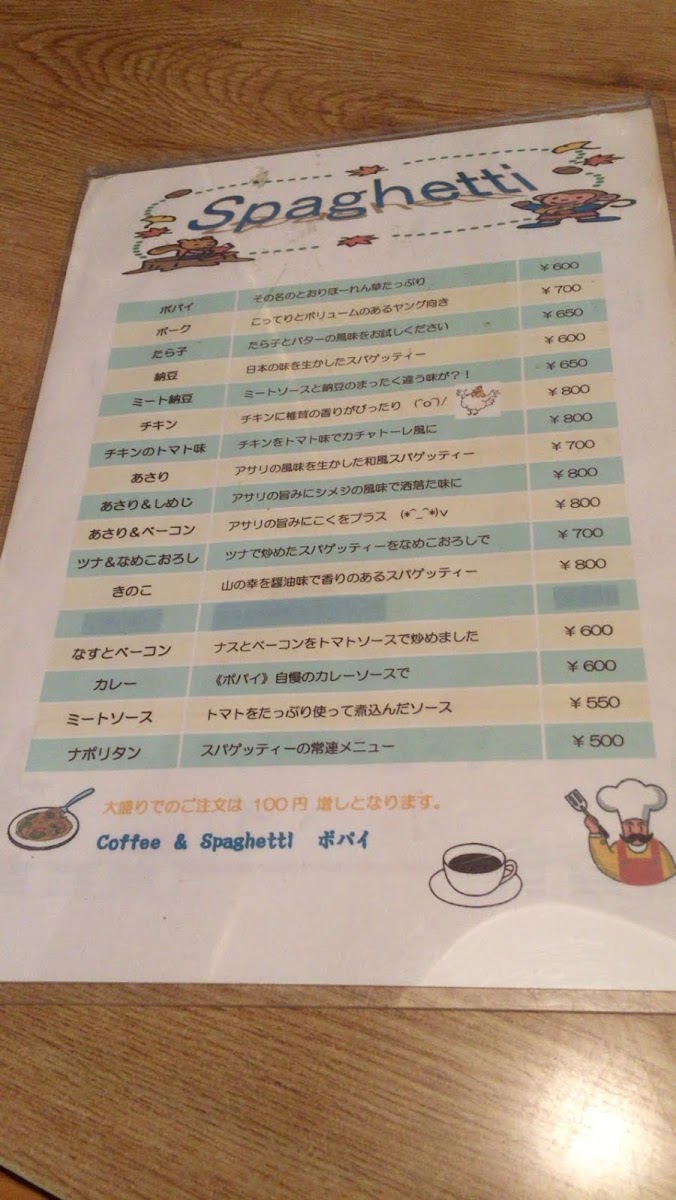 Spaghetti
ポパイ その名のとおりほーれん草たっぷり ￥600
ポーク こってりとボリュームのあるヤング向き ￥700
たら子 たら子とバターの風味をお試しください ￥650
納豆 日本の味を生かしたスパゲッティー ￥600
ミート納豆 ミートソースと納豆のまったく違う味が？！ ￥650
チキン チキンに椎茸の香りがぴったり (ˆoˆ)/ ￥800
チキンのトマト味 チキンをトマト味でカチャトーレ風に ￥800
あさり アサリの風味を生かした和風スパゲッティー ￥700
あさり＆しめじ アサリの旨みにシメジの風味で洒落た味に ￥800
あさり＆ベーコン アサリの旨みにこくをプラス (*^_^*)v ￥800
ツナ＆なめこおろし ツナで炒めたスパゲッティーをなめこおろしで ￥700
きのこ 山の幸を醤油味で香りのあるスパゲッティー ￥800
なすとベーコン ナスとベーコンをトマトソースで炒めました ￥600
カレー 《ポパイ》自慢のカレーソースで ￥600
ミートソース トマトをたっぷり使って煮込んだソース ￥550
ナポリタン スパゲッティーの常連メニュー ￥500
大盛りでのご注文は 100円 増しとなります。
Coffee & Spaghetti ポパイ